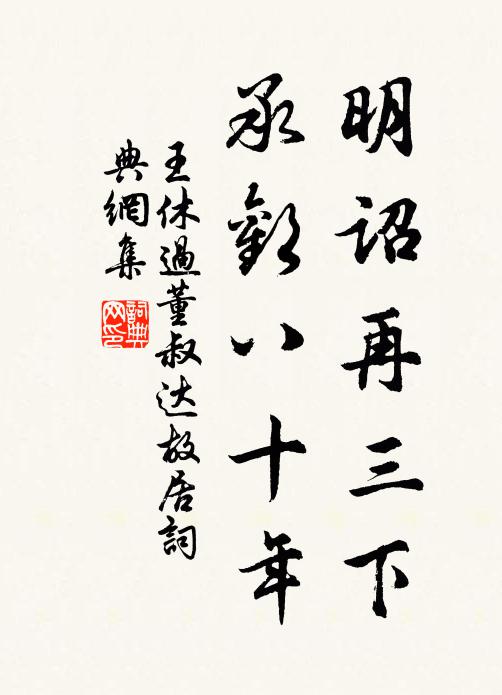 明詔再三下
承歡八十年
王休過董叔达故居詞
典網集
詞典網印